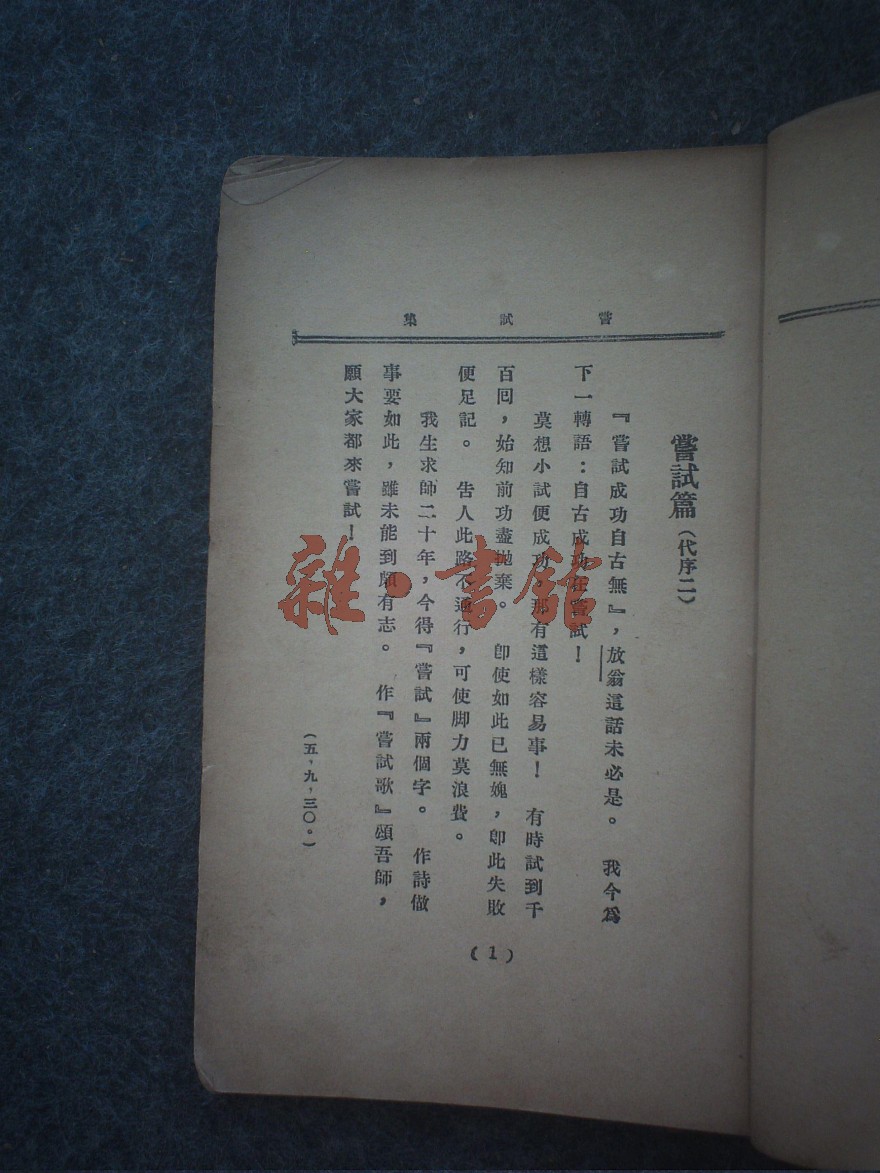 嘗試集
嘗試篇(代序二)
『嘗試成功自古無』,放翁這話未必是。 我今爲
下一轉語:自古成功在嘗試!
莫想小試便成功,那有這樣容易事! 有時試到千
百回,始知前功盡拋棄。 卽使如此已無媿,卽此失敗
便足記。 告人此路不通行,可使脚力莫浪費。
我生求師二十年,今得『嘗試』兩個字。 作詩做
事要如此,雖未能到頗有志。 作『嘗試歌』頌吾師,
願大家都來嘗試!
(五,九,三〇。)
(1)
雜·書館